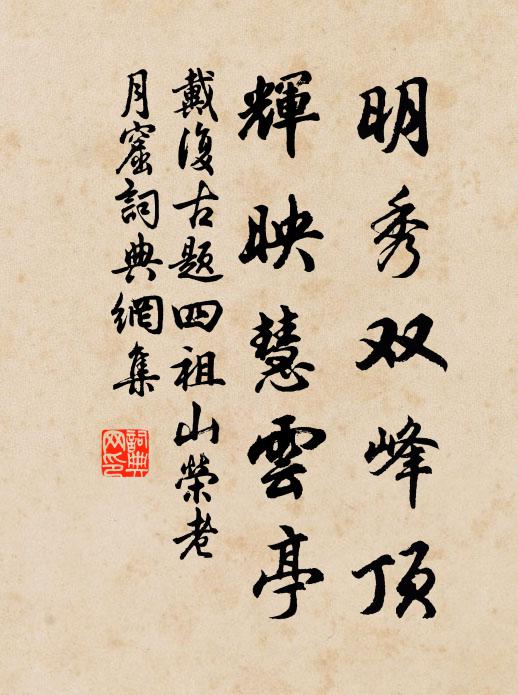 明秀双峰顶
輝映慧雲亭
戴復古題四祖山榮老
月窟詞典網集
詞典网印